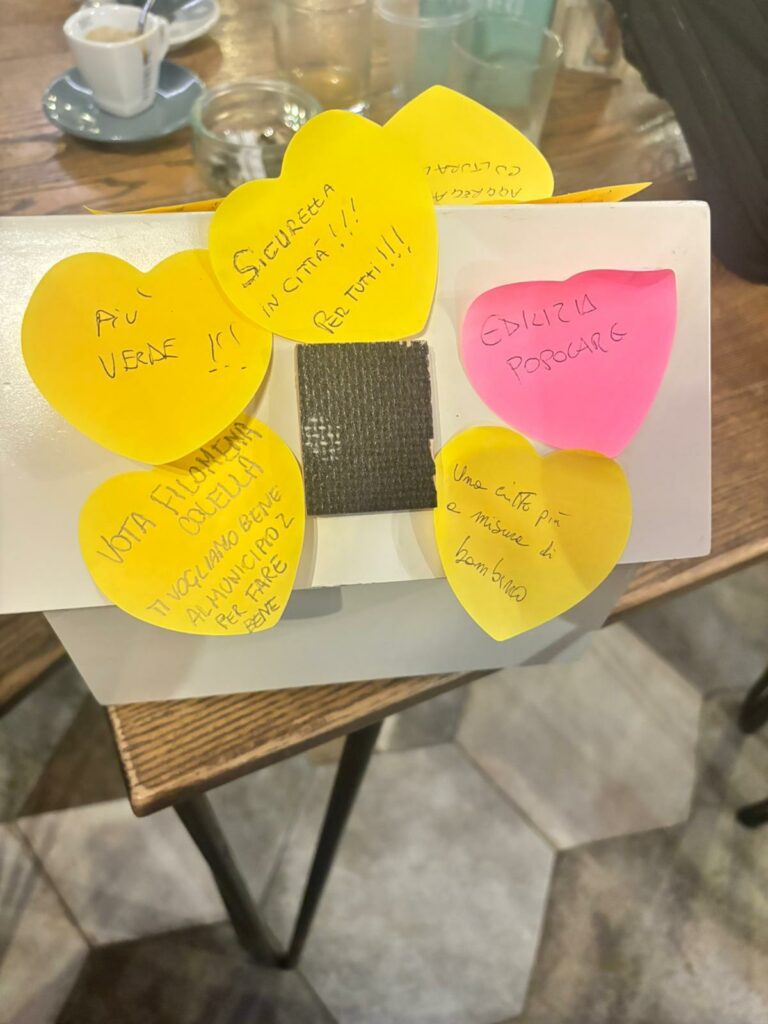 AGGREGA
CULTURAL
SICUREZZA
IN CITTÀ!!!
PER TUTTI!!!
PIÙ
VERDE !!!
EDILIZIA
POPOLARE
VOTA FILOMENA
COLELLA
TI VOGLIAMO BENE
AL MUNICIPIO 2
PER FARE
BENE
Una città più
a misura di
bambino